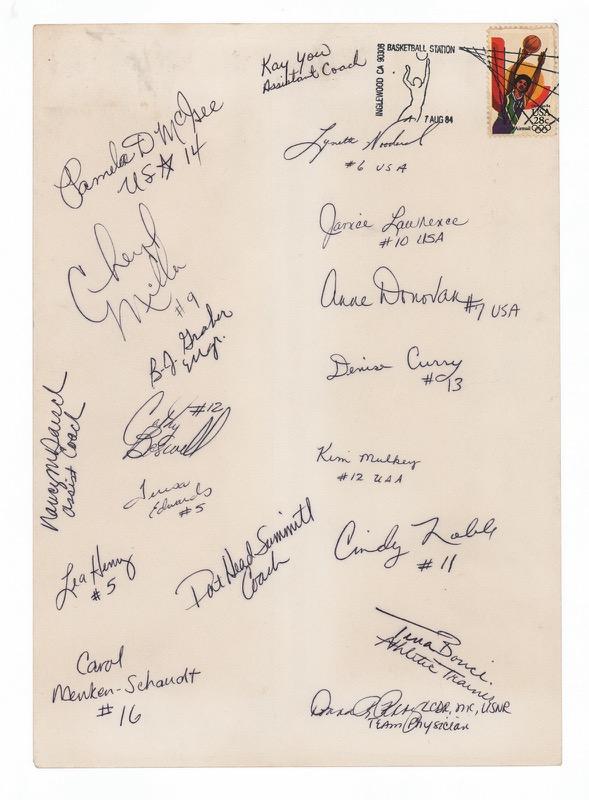 Kay Yow
Assistant Coach
INGLEWOOD CA 90305
BASKETBALL STATION
7 AUG 84
USA
28c
Airmail
Pamela D McGee
USA 14
Lynette Woodard
#6 USA
Janice Lawrence
#10 USA
Cheryl
Miller
#9
Anne Donovan #7 USA
B.J. Graber
Mgr.
Denise Curry
#13
Nancy M Darsch
Assist Coach
Cathy #12
Boswell
Kim Mulkey
#12 USA
Teresa
Edwards
#5
Cindy Noble
#11
Lea Henry
#5
Pat Head Summitt
Coach
Tina Bonci
Athletic Trainer
Carol
Menken-Schaudt
#16
LCDR, MC, USNR
TEAM Physician